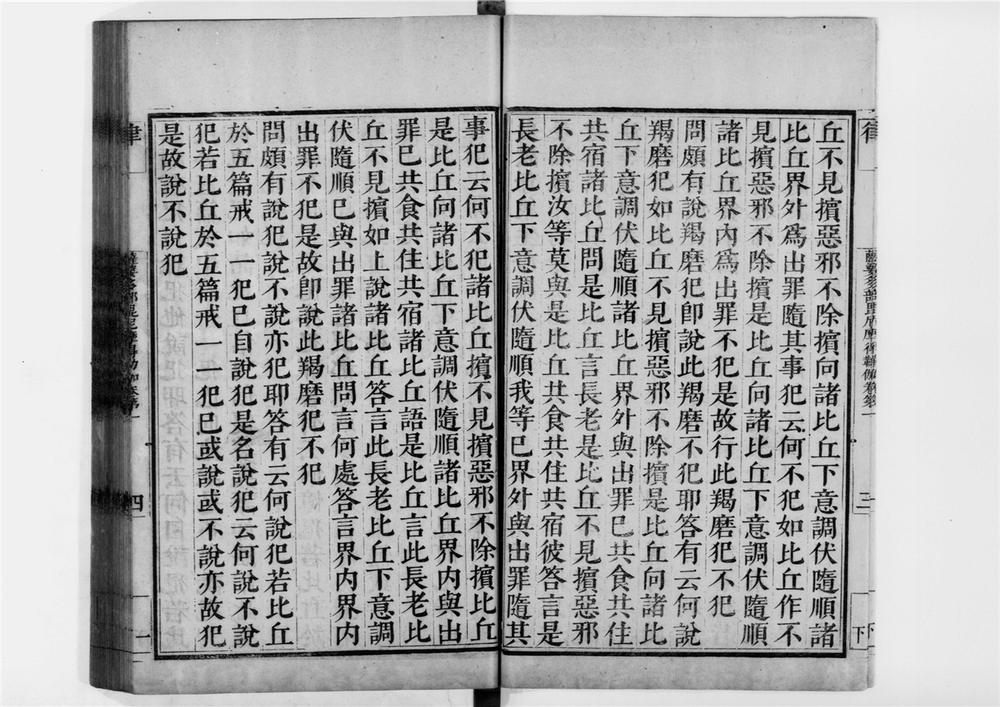 丘不見擯惡邪不除擯向諸比丘下意調伏隨順諸
比丘界外爲出罪隨其事犯云何不犯如比丘作不
見擯惡邪不除擯是比丘向諸比丘下意調伏隨順
諸比丘界內爲出罪不犯是故行此羯磨犯不犯
問頗有說羯磨犯卽說此羯磨不犯耶答有云何說
羯磨犯如比丘不見擯惡邪不除擯是比丘向諸比
丘下意調伏隨順諸比丘界外與出罪已共食共住
共宿諸比丘問是比丘言長老是比丘不見擯惡邪
不除擯汝等莫與是比丘共食共住共宿彼答言是
長老比丘下意調伏隨順我等已界外與出罪隨其
事犯云何不犯諸比丘擯不見擯惡邪不除擯比丘
是比丘向諸比丘下意調伏隨順諸比丘界內與出
罪已共食共住共宿諸比丘語是比丘言此長老比
丘不見擯如上說諸比丘答言此長老比丘下意調
伏隨順已與出罪諸比丘問言何處答言界內界內
出罪不犯是故卽說此羯磨犯不犯
問頗有說犯說不說亦犯耶答有云何說犯若比丘
於五篇戒一一犯已自說犯是名說犯云何說不說
犯若比丘於五篇戒一一犯已或說或不說亦故犯
是故說不說犯
四
一
三
下